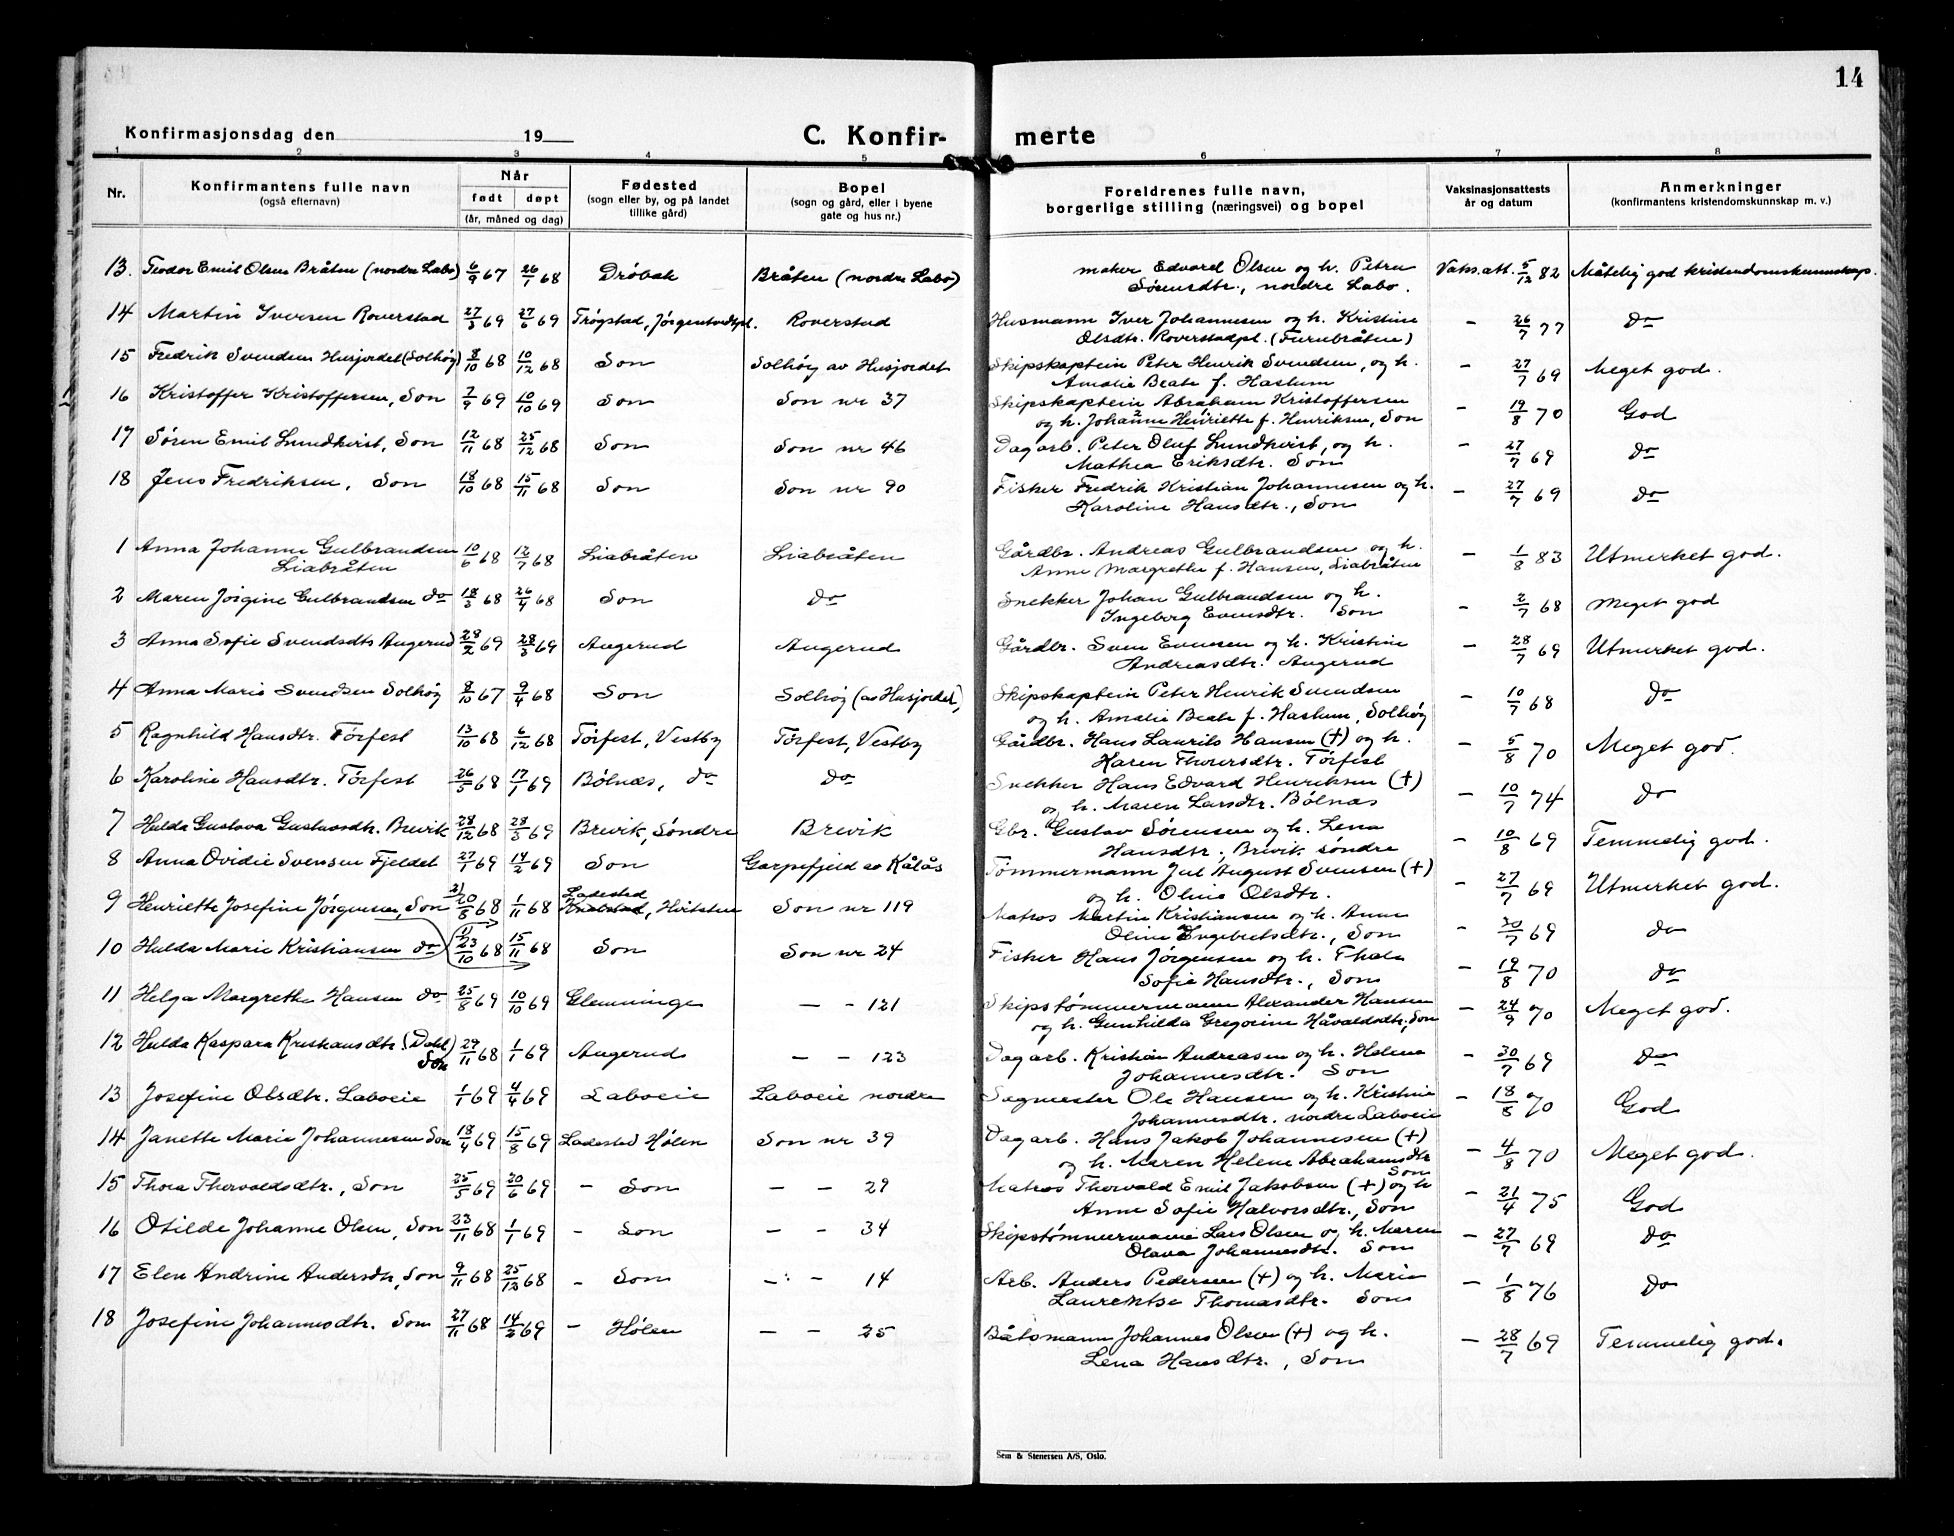 14
Konfirmasjonsdag den 19
C. Konfir-
merte
1 2 3 4 5 6 7 8
Nr. Konfirmantens fulle navn (også efternavn) Når født døpt (år, måned og dag) Fødested (sogn eller by, og på landet tillike gård) Bopel (sogn og gård, eller i byene gate og hus nr.) Foreldrenes fulle navn, borgerlige stilling (næringsvei) og bopel Vaksinasjonsattests år og datum Anmerkninger (konfirmantens kristendomskunnskap m. v.)
13. Teodor Emil Olsen Bråten (nordre Labo) 6/9 67 26/1 68 Drøbak Bråten (nordre Labo) maker Edvard Olsen og h. Petra Vaks.att. 5/12 82 Måtelig god kristendomskunnskap.
Sørensdtr., nordre Labo.
14 Martin Iversen Roverstad 27/3 69 27/6 69 Trøgstad, Roverstad Husmann Iver Johannesen og h. Kristine - 26/7 77 do
Olsdtr. Roverstadpl. (Furubråten)
15 Fredrik Svendsen Husjordet (Solhøg) 8/10 68 10/12 68 Son Solhøg av Husjordet Skipskaptein Peter Henrik Svendsen, og h. - 27/7 69 Meget god.
Amalie Beate f. Haslum
16 Kristoffer Kristoffersen, Son 7/9 69 10/10 69 Son Son nr 37 Skipskaptein Abraham Kristoffersen - 19/8 70 God
og h. Johanne Henriette f. Henriksen, Son
17 Søren Emil Lundkvist, Son 12/11 68 25/12 68 Son Son nr 46 Dagarb. Peter Oluf Lundkvist, og h. - 27/7 69 do
Mathea Eriksdtr. Son
18 Jens Fredriksen, Son 18/10 68 15/11 68 Son Son nr 90 Fisker Fredrik Kristian Johannesen og h. - 27/7 69 do
Karoline Hansdtr., Son
1 Anna Johanne Gulbrandsen 10/6 68 12/7 68 Liabråten Liabråten Gårdbr. Andreas Gulbrandsen og h. - 1/8 83 Utmerket god.
Liabråten Anne Margrethe f. Hansen, Liabråten
2 Maren Jørgine Gulbrandsen do 18/3 68 26/4 68 Son do Snekker Johan Gulbrandsen og h. - 2/7 68 Meget god
Ingeborg Evensdtr. Son
3 Anna Sofie Svendsdtr Augerud 28/2 69 28/3 69 Augerud Augerud Gårdbr. Sven Evensen og h. Kristine - 28/7 69 Utmerket god.
Andreasdtr. Augerud
4 Anna Marie Svendsen Solhøg 8/10 67 9/4 68 Son Solhøg (av Husjordet) Skipskaptein Peter Henrik Svendsen - 10/7 68 do
og h. Amalie Beate f. Haslum, Solhøg
5 Ragnhild Hansdtr. Tørfest 13/10 68 6/12 68 Tørfest, Vestby Tørfest, Vestby Gårdbr. Hans Laurits Hansen (+) og h. - 5/8 70 Meget god.
Karen Thoresdtr. Tørfest
6 Karoline Hansdtr. Tørfest 26/5 68 17/1 69 Bølnæs, do do Snekker Hans Edvard Henriksen (+) - 10/7 74 do
og h. Maren Larsdtr. Bølnæs
7 Hulda Gustava Gustavsdtr. Brevik 28/12 68 28/3 69 Brevik, Søndre Brevik Gbr. Gustav Sørensen og h. Lena - 10/8 69 Temmelig god.
Hansdtr., Brevik søndre
8 Anna Ovidie Svensen Fjeldet 27/1 69 14/2 69 Son Garpefjeld av Kålås Tømmermann Jul August Svensen (+) - 27/7 69 Utmerket god.
og h. Oline Olsdtr.
9 Henriette Josefine Jørgensen, Son 2) 20/5 68 1/11 68 Ladested Hvitsten Son nr 119 Matros Martin Kristiansen og h. Anne - 30/7 69 do
Oline Engebretsdtr., Son
10 Hulda Marie Kristiansen do 1) 23/10 68 15/11 68 Son Son nr 24 Fisker Hans Jørgensen og h. Thale - 19/8 70 do
Sofie Hansdtr., Son
11 Helga Margrethe Hansen do 25/8 69 10/10 69 Glemminge - - 121 Skipstømmermann Alexander Hansen - 24/9 70 Meget god.
og h. Gunhilda Gregorine Håvaldsdtr., Son
12 Hulda Kaspara Kristiansdtr. (Dahl) Son 29/11 68 1/1 69 Augerud - - 123 Dagarb. Kristian Andreasen og h. Helene - 30/7 69 do
Johannesdtr. Son
13 Josefine Olsdtr. Laboeie 1/1 69 4/4 69 Laboeie Laboeie nordre Sagmester Ole Hansen og h. Kristine - 18/8 70 God
Johannesdtr. nordre Laboeie
14 Janette Marie Johannesen Son 18/4 69 15/8 69 Ladested Hølen Son nr 39 Dagarb. Hans Jakob Johannesen (+) - 4/8 70 Meget god.
og h. Maren Helene Abrahamsdtr Son
15 Thora Thorvaldsdtr., Son 25/5 69 20/6 69 - Son - - 29 Matros Thorvald Emil Jakobsen (+) og h - 21/4 75 God
Anne Sofie Halvorsdtr., Son
16 Otilde Johanne Olsen, Son 23/11 68 1/1 69 - Son - - 34 Skipstømmermann Lars Olsen og h. Maren - 27/7 69 do
Olava Johannesdtr. Son
17 Elen Andrine Andersdtr, Son 9/11 68 25/12 68 - Son - - 14 Arb. Anders Pedersen (+) og h. Marie - 1/8 76 do
Laurentse Thomasdtr. Son
18 Josefine Johannesdtr. Son 27/11 68 14/2 69 - Hølen - - 25 Båtsmann Johannes Olsen (+) og h. - 28/7 69 Temmelig god.
Lena Hansdtr., Son
Sem & Stenersen A/S, Oslo.